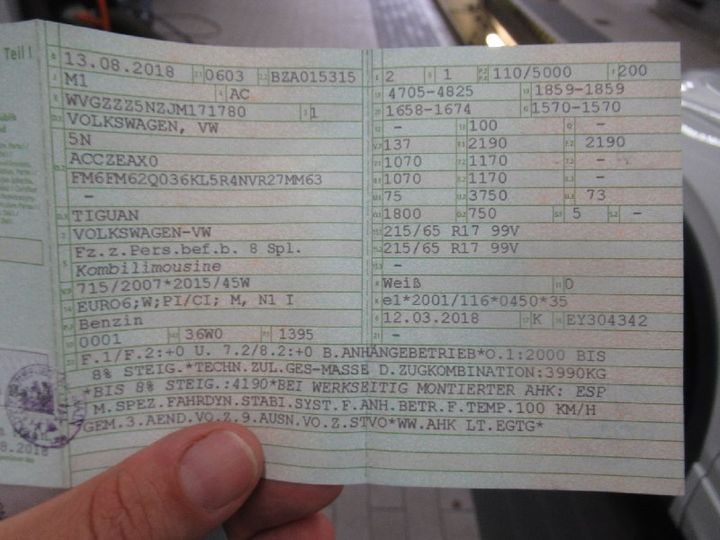 Teil I
13.08.2018 0603 BZA015315
M1 AC
WVGZZZ5NZJM171780 1
VOLKSWAGEN, VW
5N
ACCZEAX0
FM6FM62Q036KL5R4NVR27MM63
–
TIGUAN
VOLKSWAGEN-VW
Fz.z.Pers.bef.b. 8 Spl.
Kombilimousine
715/2007*2015/45W
EURO6;W;PI/CI; M, N1 I
Benzin
0001 36W0 1395
2 1 110/5000 200
4705-4825 1859-1859
1658-1674 1570-1570
– 100 –
137 2190 2190
1070 1170 –
1070 1170 –
75 3750 73
1800 750 5 –
215/65 R17 99V
215/65 R17 99V
–
Weiß 0
e1*2001/116*0450*35
12.03.2018 K EY304342
–
F.1/F.2:+0 U. 7.2/8.2:+0 B.ANHÄNGEBETRIEB*O.1:2000 BIS
8% STEIG.*TECHN.ZUL.GES-MASSE D.ZUGKOMBINATION:3990KG
*BIS 8% STEIG.:4190*BEI WERKSEITIG MONTIERTER AHK: ESP
M.SPEZ.FAHRDYN.STABI.SYST.F.ANH.BETR.F.TEMP.100 KM/H
GEM.3.AEND.VO.Z.9.AUSN.VO.Z.STVO*WW.AHK LT.EGTG*